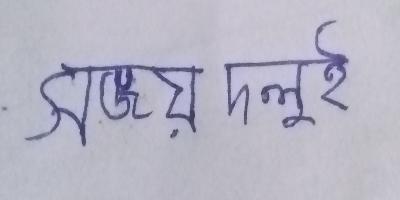 সজয় দলুই